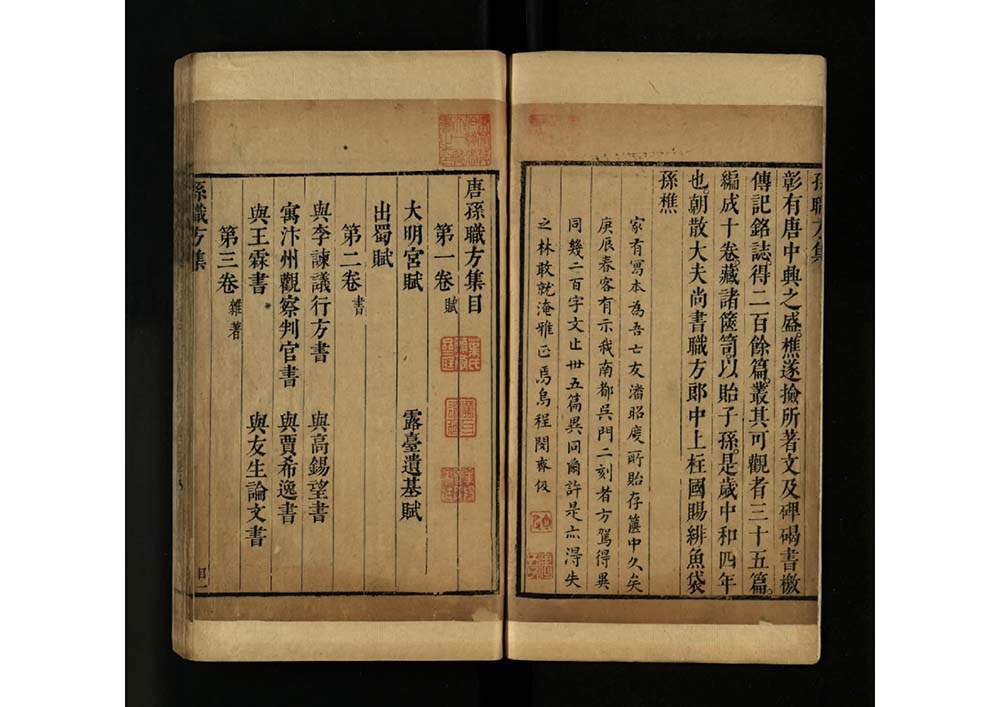 孫職方集
彰有唐中興之盛樵遂撿所著文及碑碣書檄
傳記銘誌得二百餘篇叢其可觀者三十五篇
編成十卷藏諸篋笥以貽子孫是歲中和四年
也朝散大夫尚書職方郎中上柱國賜緋魚袋
孫樵
家有寫本為吾亡友潘昭度所貽存篋中久矣
庚辰春客有示我南都吳門二刻者方駕得異
同幾二百字文止卅五篇異同爾許是亦得失
之林敢就淹雅正焉烏程閔齊伋
唐孫職方集目
第一卷 賦
大明宮賦 露臺遺基賦
出蜀賦
第二卷 書
與李諫議行方書 與高錫望書
寓汴州觀察判官書 與賈希逸書
與王霖書 與友生論文書
第三卷 雜著
孫職方集
目一